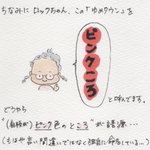 ちなみに ロックちゃん、この「ゆめタウン」を
ピンクころ
と呼んでます。
どうやら
"(看板が)ピンク色のところ"が語源…
(もはや言い間違いでなく独自に命名している…)